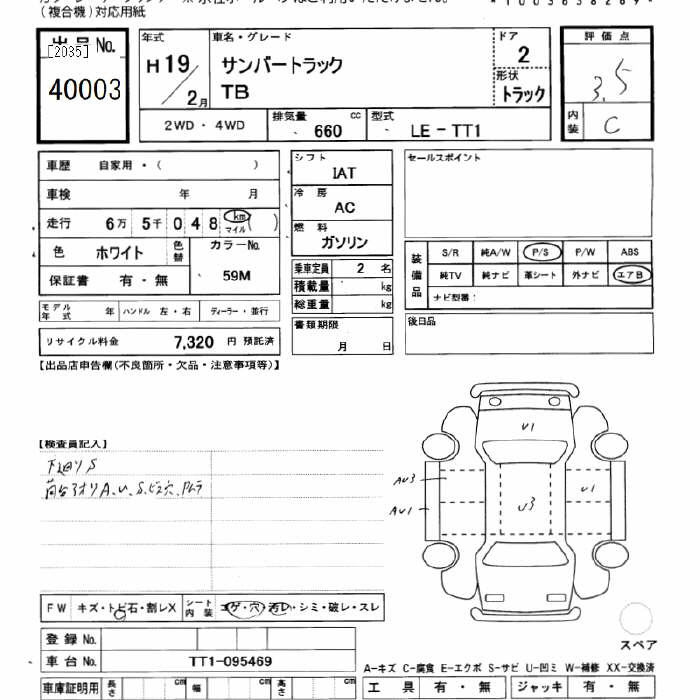 (複合機)対応用紙
出品No.
[2035]
40003
年式
H19
2月
車名・グレード
サンバートラック
TB
ドア
2
形状
トラック
評価点
3.5
内装
C
2WD・4WD
排気量
cc
660
型式
LE-TT1
車歴 自家用・( )
車検 年 月
走行 6万 5千 0 4 8 km マイル ( )
色 ホワイト 色替 カラーNo.
保証書 有・無 59M
モデル年式 年 ハンドル 左・右 ディーラー・並行
リサイクル料金 7,320 円 預託済
シフト
IAT
冷房
AC
燃料
ガソリン
乗車定員 2 名
積載量 kg
総重量 kg
書類期限
月 日
セールスポイント
装備品
S/R 純A/W P/S P/W ABS
純TV 純ナビ 革シート 外ナビ エアB
ナビ型番:
後日品
【出品店申告欄(不良箇所・欠品・注意事項等)】
【検査員記入】
下廻りS
荷台アオリA、U、S、ビス穴、Pムラ
U1
AU3
AU1
U3
U1
FW キズ・トビ石・割レX シート内装 コゲ・穴・汚レ・シミ・破レ・スレ
登録No.
車台No. TT1-095469
車庫証明用 長さ cm 幅 cm 高さ cm
スペア
A-キズ C-腐食 E-エクボ S-サビ U-凹ミ W-補修 XX-交換済
工具 有・無 ジャッキ 有・無